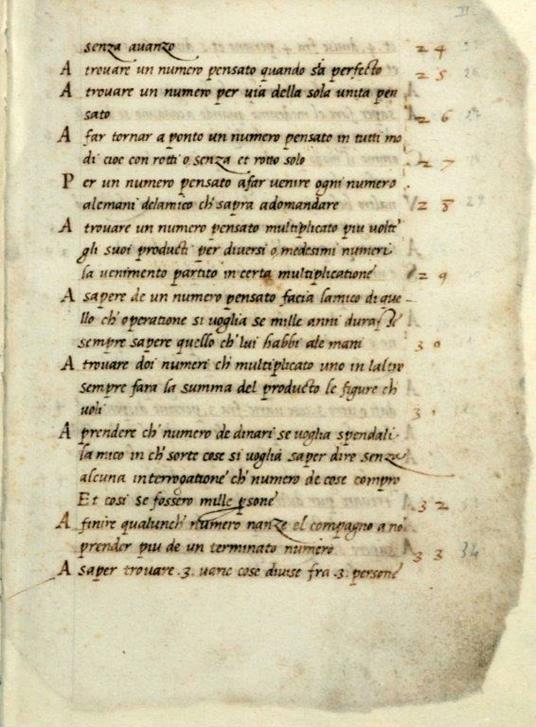 senza avanzo 24
A trovare un numero pensato quando sia perfecto 25
A trovare un numero per via della sola unita pen
sato 26
A far tornar a ponto un numero pensato in tutti mo
di cioe con rotti o senza et rotto solo 27
Per un numero pensato afar venire ogni numero
ale mani delamico ch' sapra adomandare 28
A trovare un numero pensato multiplicato piu volte
gli suoi producti per diversi o medesimi numeri
la venimento partito in certa multiplicatione 29
A sapere de un numero pensato facia lamico di que-
llo ch' operatione si voglia se mille anni durasse
sempre sapere quello ch' lui habbi ale mani 30
A trovare doi numeri ch' multiplicato uno in laltro
sempre fara la summa del producto le figure ch
voli 31
A prendere ch' numero de dinari se voglia spendali
lamico in ch' sorte cose si voglia saper dire senza
alcuna interrogatione ch' numero de cose compro
Et cosi se fossero mille psone 32
A finire qualunch' numero nanze el compagno a no
prender piu de un terminato numero 33 34
A saper trovare .3. varie cose divise fra .3. persone